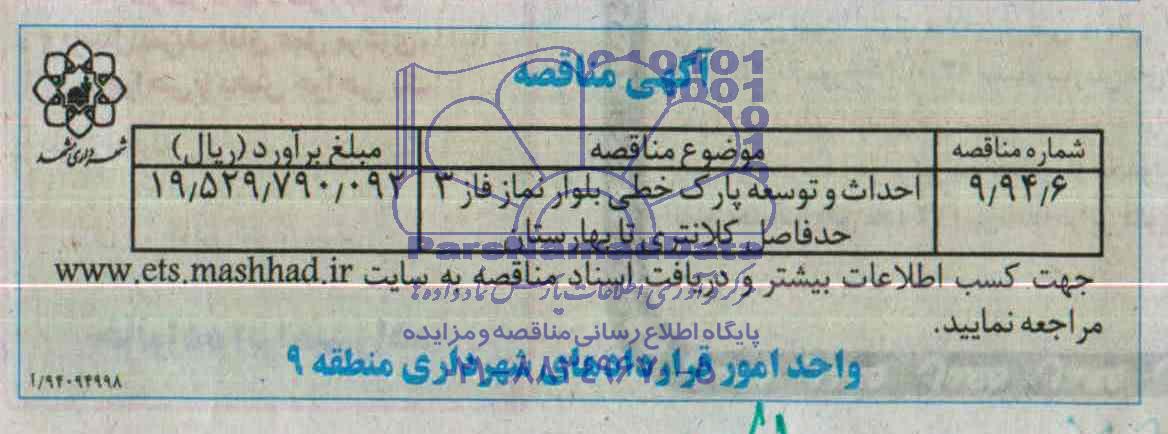 آگهی مناقصه
شهرداری مشهد
شماره مناقصه	موضوع مناقصه	مبلغ برآورد (ریال)
۹٫۹۴٫۶	احداث و توسعه پارک خطی بلوار نماز فاز ۳	۱۹٫۵۲۹٫۷۹۰٫۰۹۲
حدفاصل کلانتری تا بهارستان
ParsNamadData
جهت کسب اطلاعات بیشتر و دریافت اسناد مناقصه به سایت www.ets.mashhad.ir
مرکز آوری اطلاعات پارس نماد داده ها
مراجعه نمایید.
پایگاه اطلاع رسانی مناقصه و مزایده
واحد امور قراردادهای شهرداری منطقه ۹
۱/۹۴۰۹۴۹۹۸